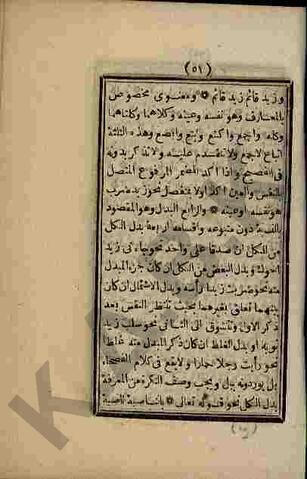 (٥١)
وزيد قائم زيد قائم * ومعنوى مخصوص
بالمعارف وهو نفسه وعينه وكلاهما وكلتاهما
وكله واجمع واكتع وابتع وابصع وهذه الثلثة
اتباع لاجمع ولا تتقدم عليه ولا تذكر بدونه
فى الفصيح واذا اكد المضمر المرفوع المتصل
بالنفس والعين اكد اولا بمنفصل نحو زيد ضرب
هو نفسه او عينه * والرابع البدل وهو المقصود
بالنسبة دون متبوعه واقسامه اربعة بدل الكل
من الكل ان صدقا على واحد نحو جاءنى زيد
اخوك وبدل البعض من الكل ان كان جزء المبدل
منه نحو ضربت زيدا رأسه وبدل الاشتمال ان كان
بينهما تعلق بغيرهما بحيث تنتظر النفس بعد
ذكر الاول وتتشوق الى الثانى نحو سلب زيد
ثوبه او بدل الغلط ان كان ذكر المبدل منه غلطا
نحو رأيت رجلا حمارا ولا يقع فى كلام الفصحاء
بل يوردونه ببل ويجب وصف النكرة من المعرفة
بدل الكل نحو قوله تعالى * بالناصية ناصية